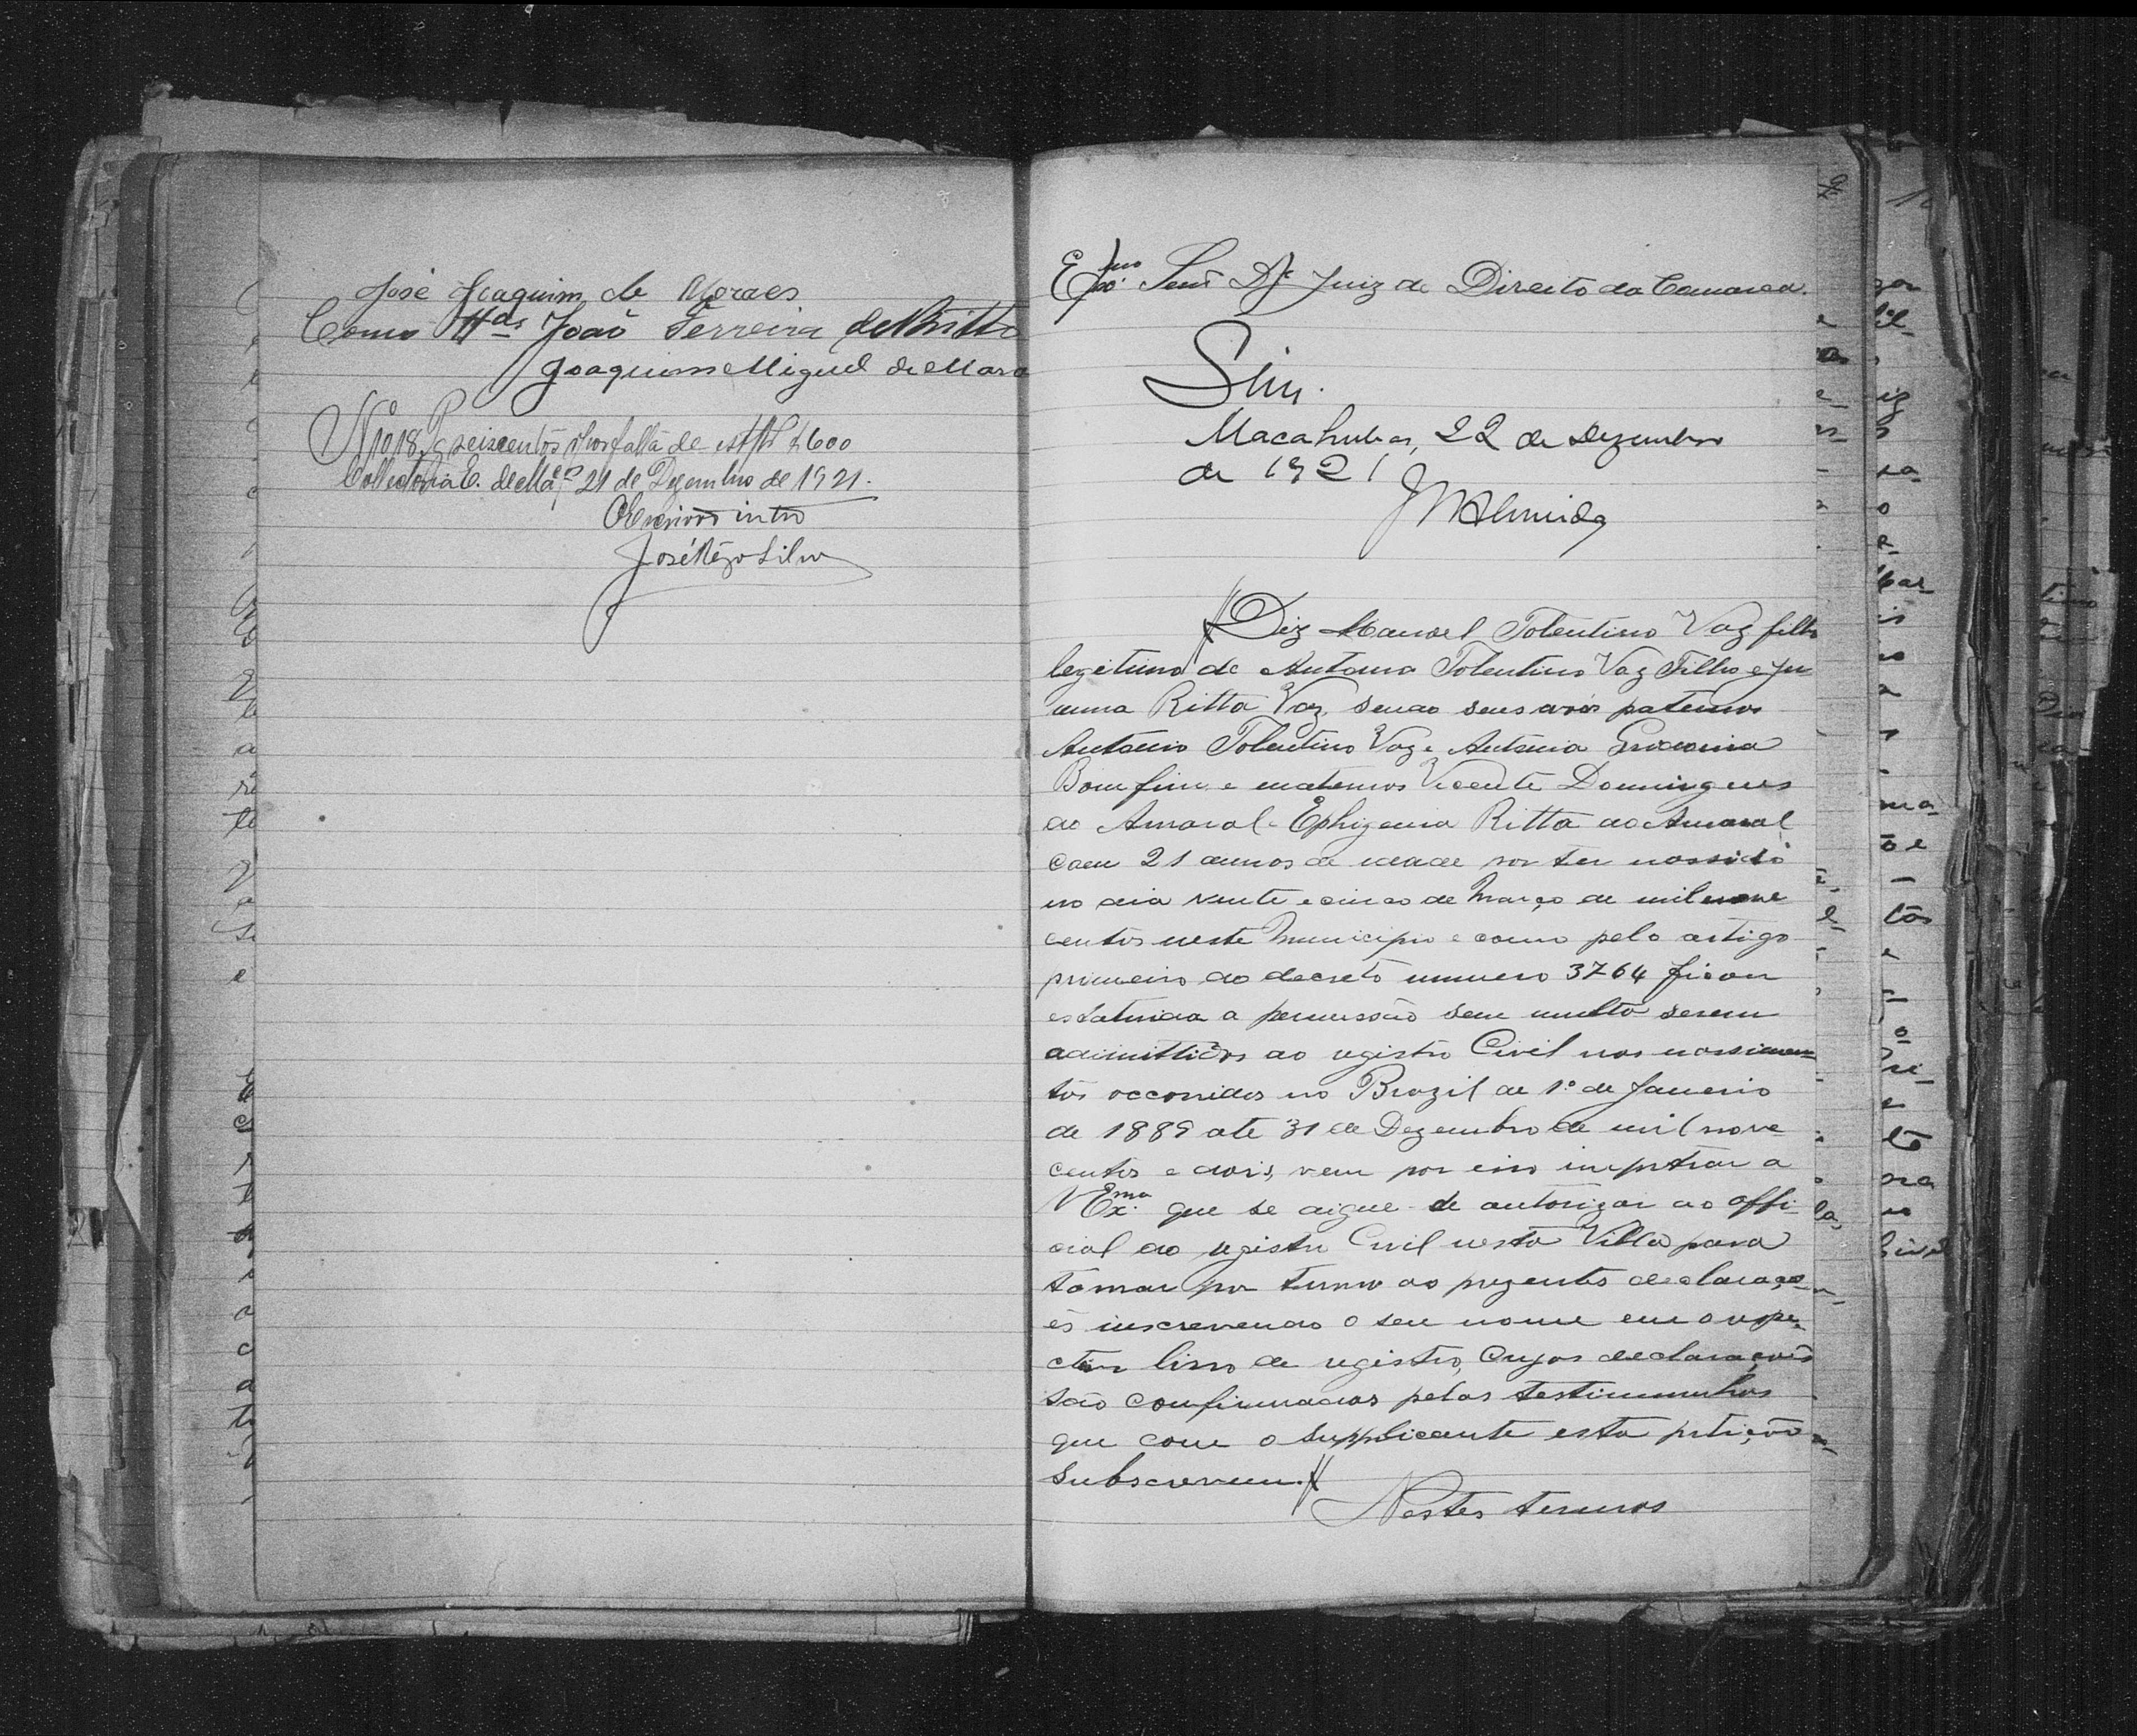 José Joaquim de Moraes
Como tt.das João Ferreira de Britto
Joaquim Miguel de Mora
N 1018. Pg seiscentos por falta de estplª $600
Collectoria E. de Mac.as 21 de Dezembro de 1921.
O Escrivão intro
José Rêgo Silva
Exmo Senr Dr Juiz de Direito da Comarca.
Sim.
Macahubas, 22 de Dezembro
de 1921
J M Almeida
Diz Manoel Tolentino Vaz filho
legitimo de Antonio Tolentino Vaz Filho e Ju
anna Ritta Vaz, sendo seus avós paternos
Antonio Tolentino Vaz e Antonia
Bomfim e maternos Vicente Domingues
do Amaral e Ephigenia Ritta do Amaral
com 21 annos de idade por ter nassido
no dia vinte e cinco de Março de mil nove
centos neste Municipio e como pelo artigo
primeiro do decreto numero 3764 ficou
estatuida a permissão sem multa serem
adimittidos ao registro Civil nos nassimen
tos occorridos no Brazil de 1º de Janeiro
de 1889 até 31 de Dezembro de mil nove
centos e dois, vem por isso impetrar a
V Exma. que se digne de autorizar ao offi-
cial do registro Civil nesta Villa para
tomar por termo as prezentes declaraço-
es inscrevendo o seu nome em o respe-
ctivo livro de registro, cujas declarações
são confirmadas pelas testimunhas
que com o Supplicante esta petição
subscrevem.
Nestes termos